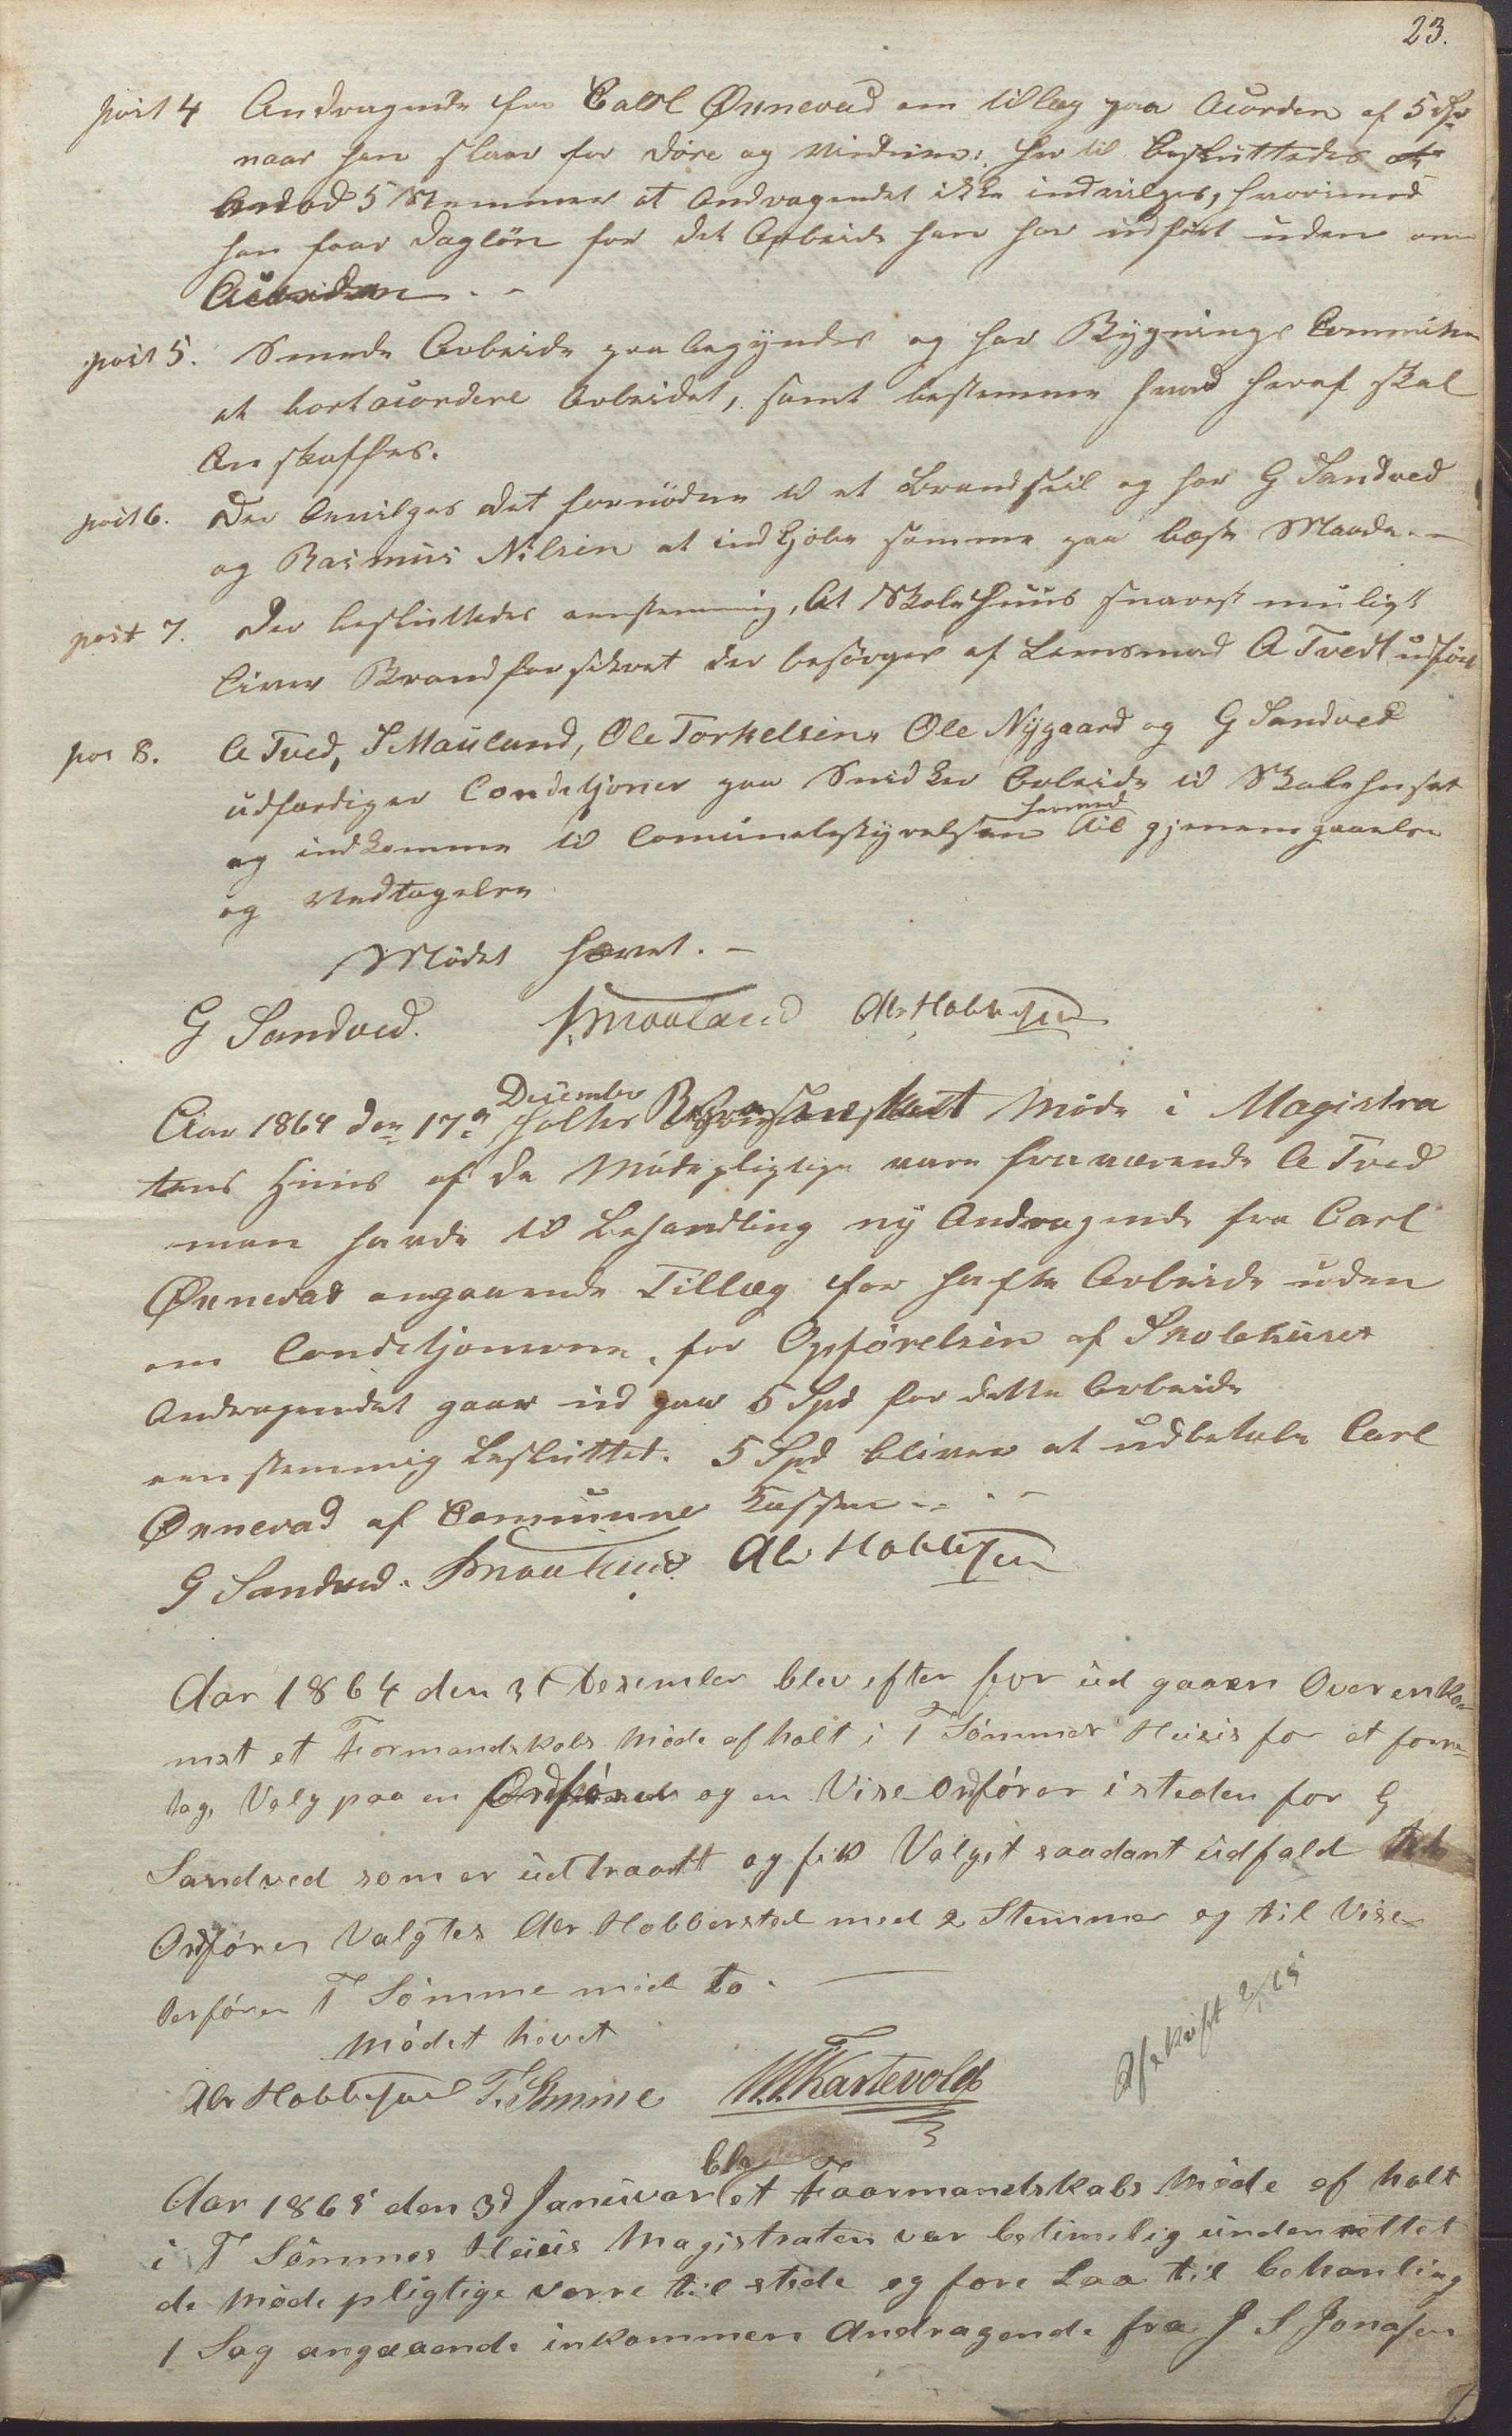 23.
post 4 Andragende fra Carl Ønnevad om tillæg paa Acorden af 5 Spd
naar han staar for Döre og Vinduer: her til besluttedes
5 Stemmer at Andragendet ikke indvilges, hvorimod
han faar Daglön for det Arbeide han har udført uden om
Acorden. -
post 5. Smede Arbeide paabegyndes og har Bygnings Commiten
at bortacordere Arbeidet, samt bestemme hvad heraf skal
Anskaffes.
post 6. Der bevilges det fornödne til et Brandseil og har G Sandved
og Rasmus Nilsen at indkjøbe samme paa beste Maade. -
post 7. Der besluttedes eenstemmig, At Skolehuus snarest muligt
bliver Brandforsikret der besörges af Lensmand A Tvedt udfört
pos 8. A Tved, S Mauland, Ole Torkelsen, Ole Nÿgaard og G Sandved
udfærdiger Conditjoner paa Snidker Arbeide til Skolehuset
og indkomme til Comunebestyrelsen hermed til gjenemgaaelse
og Vedtagelse
Mödet hævet. -
G Sandved. S Mauland Alr Hobbersted
Aar 1864 den 17de December holtes Møde i Magistra
tens Huus af de Mødepligtige vare fraværende A Tved
man havde til Behandling ny Andragende fra Carl
Ønnevad angaaende Tillæg for hafte Arbeide uden
om Conditjonerne, for Opførelsen af Skolehuset
Andragendet gaar ud paa 5 Spd for dette Arbeide
eenstemmig besluttet. 5 Spd bliver at udbetale Carl
Ønnevad af Comunne Kassen - -
G Sandved. S Mauland Alr Hobbersted
Aar 1864 den 31 Desember blev efter for ud gaaen Overenkom
mst et Formandskabs Møde af holt i T Sömmes Huus for at fore
tag, Valg paa en Ordförer og en Vise Ordförer i steden for G
Sandved som er udtraadt og fik Valget saadant udfald
Ordförer Valgtes Alr Hobbersted med 2 Stemmer og til Vise
Orförer T Sömme med to. -
Mödet hevet
Afskrift 2/1 65
Alr Hobbersted T. Sömme M. Kartevold
Aar 1865 den 3d Januvar blev et Foormandskabs Møde af holt
i T Sömmes Huus Magistraten var betimelig underrettet
de Møde pligtige varre til stede og fore Laa til behanling
1 Sag angaaende inkommen Andragende fra J S Jonasen